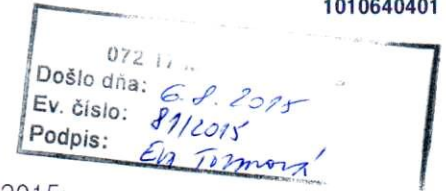 1010640401
072 17
Došlo dňa: 6.8.2015
Ev. číslo: 81/2015
Podpis:
2015